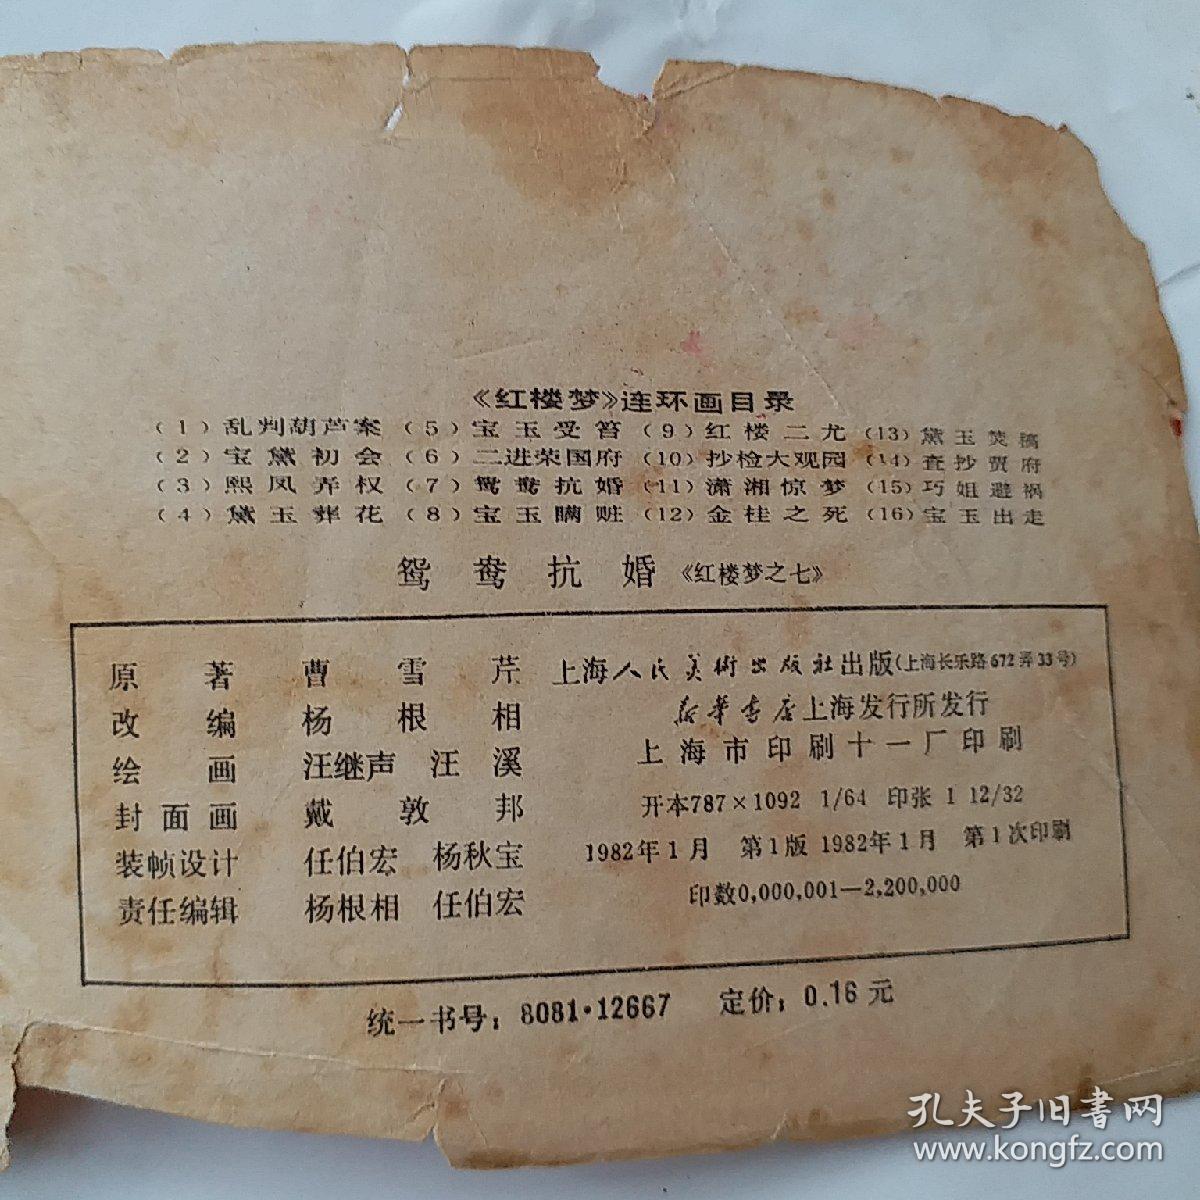 《红楼梦》连环画目录
(1) 乱判葫芦案 (5) 宝玉受笞 (9) 红楼二尤 (13) 黛玉焚稿
(2) 宝黛初会 (6) 二进荣国府 (10) 抄检大观园 (14) 查抄贾府
(3) 熙凤弄权 (7) 鸳鸯抗婚 (11) 潇湘惊梦 (15) 巧姐避祸
(4) 黛玉葬花 (8) 宝玉瞒赃 (12) 金桂之死 (16) 宝玉出走
鸳鸯抗婚 《红楼梦之七》
原著 曹雪芹
改编 杨根相
绘画 汪继声 汪溪
封面画 戴敦邦
装帧设计 任伯宏 杨秋宝
责任编辑 杨根相 任伯宏
上海人民美術出版社出版(上海长乐路672弄33号)
新华书店上海发行所发行
上海市印刷十一厂印刷
开本787×1092 1/64 印张 1 12/32
1982年1月 第1版 1982年1月 第1次印刷
印数0,000,001—2,200,000
统一书号：8081·12667 定价：0.16元
孔夫子旧書网
www.kongfz.com